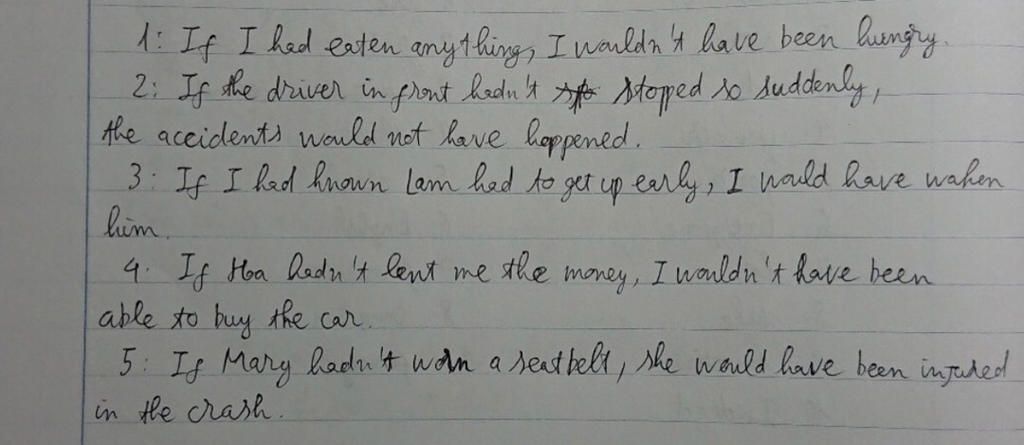 1: If I had eaten anything, I wouldn't have been hungry.
2: If the driver in front hadn't stopped so suddenly,
the accidents would not have happened.
3: If I had known Lam had to get up early, I would have waken
him.
4. If Hoa hadn't lent me the money, I wouldn't have been
able to buy the car.
5: If Mary hadn't worn a seatbelt, she would have been injured
in the crash.